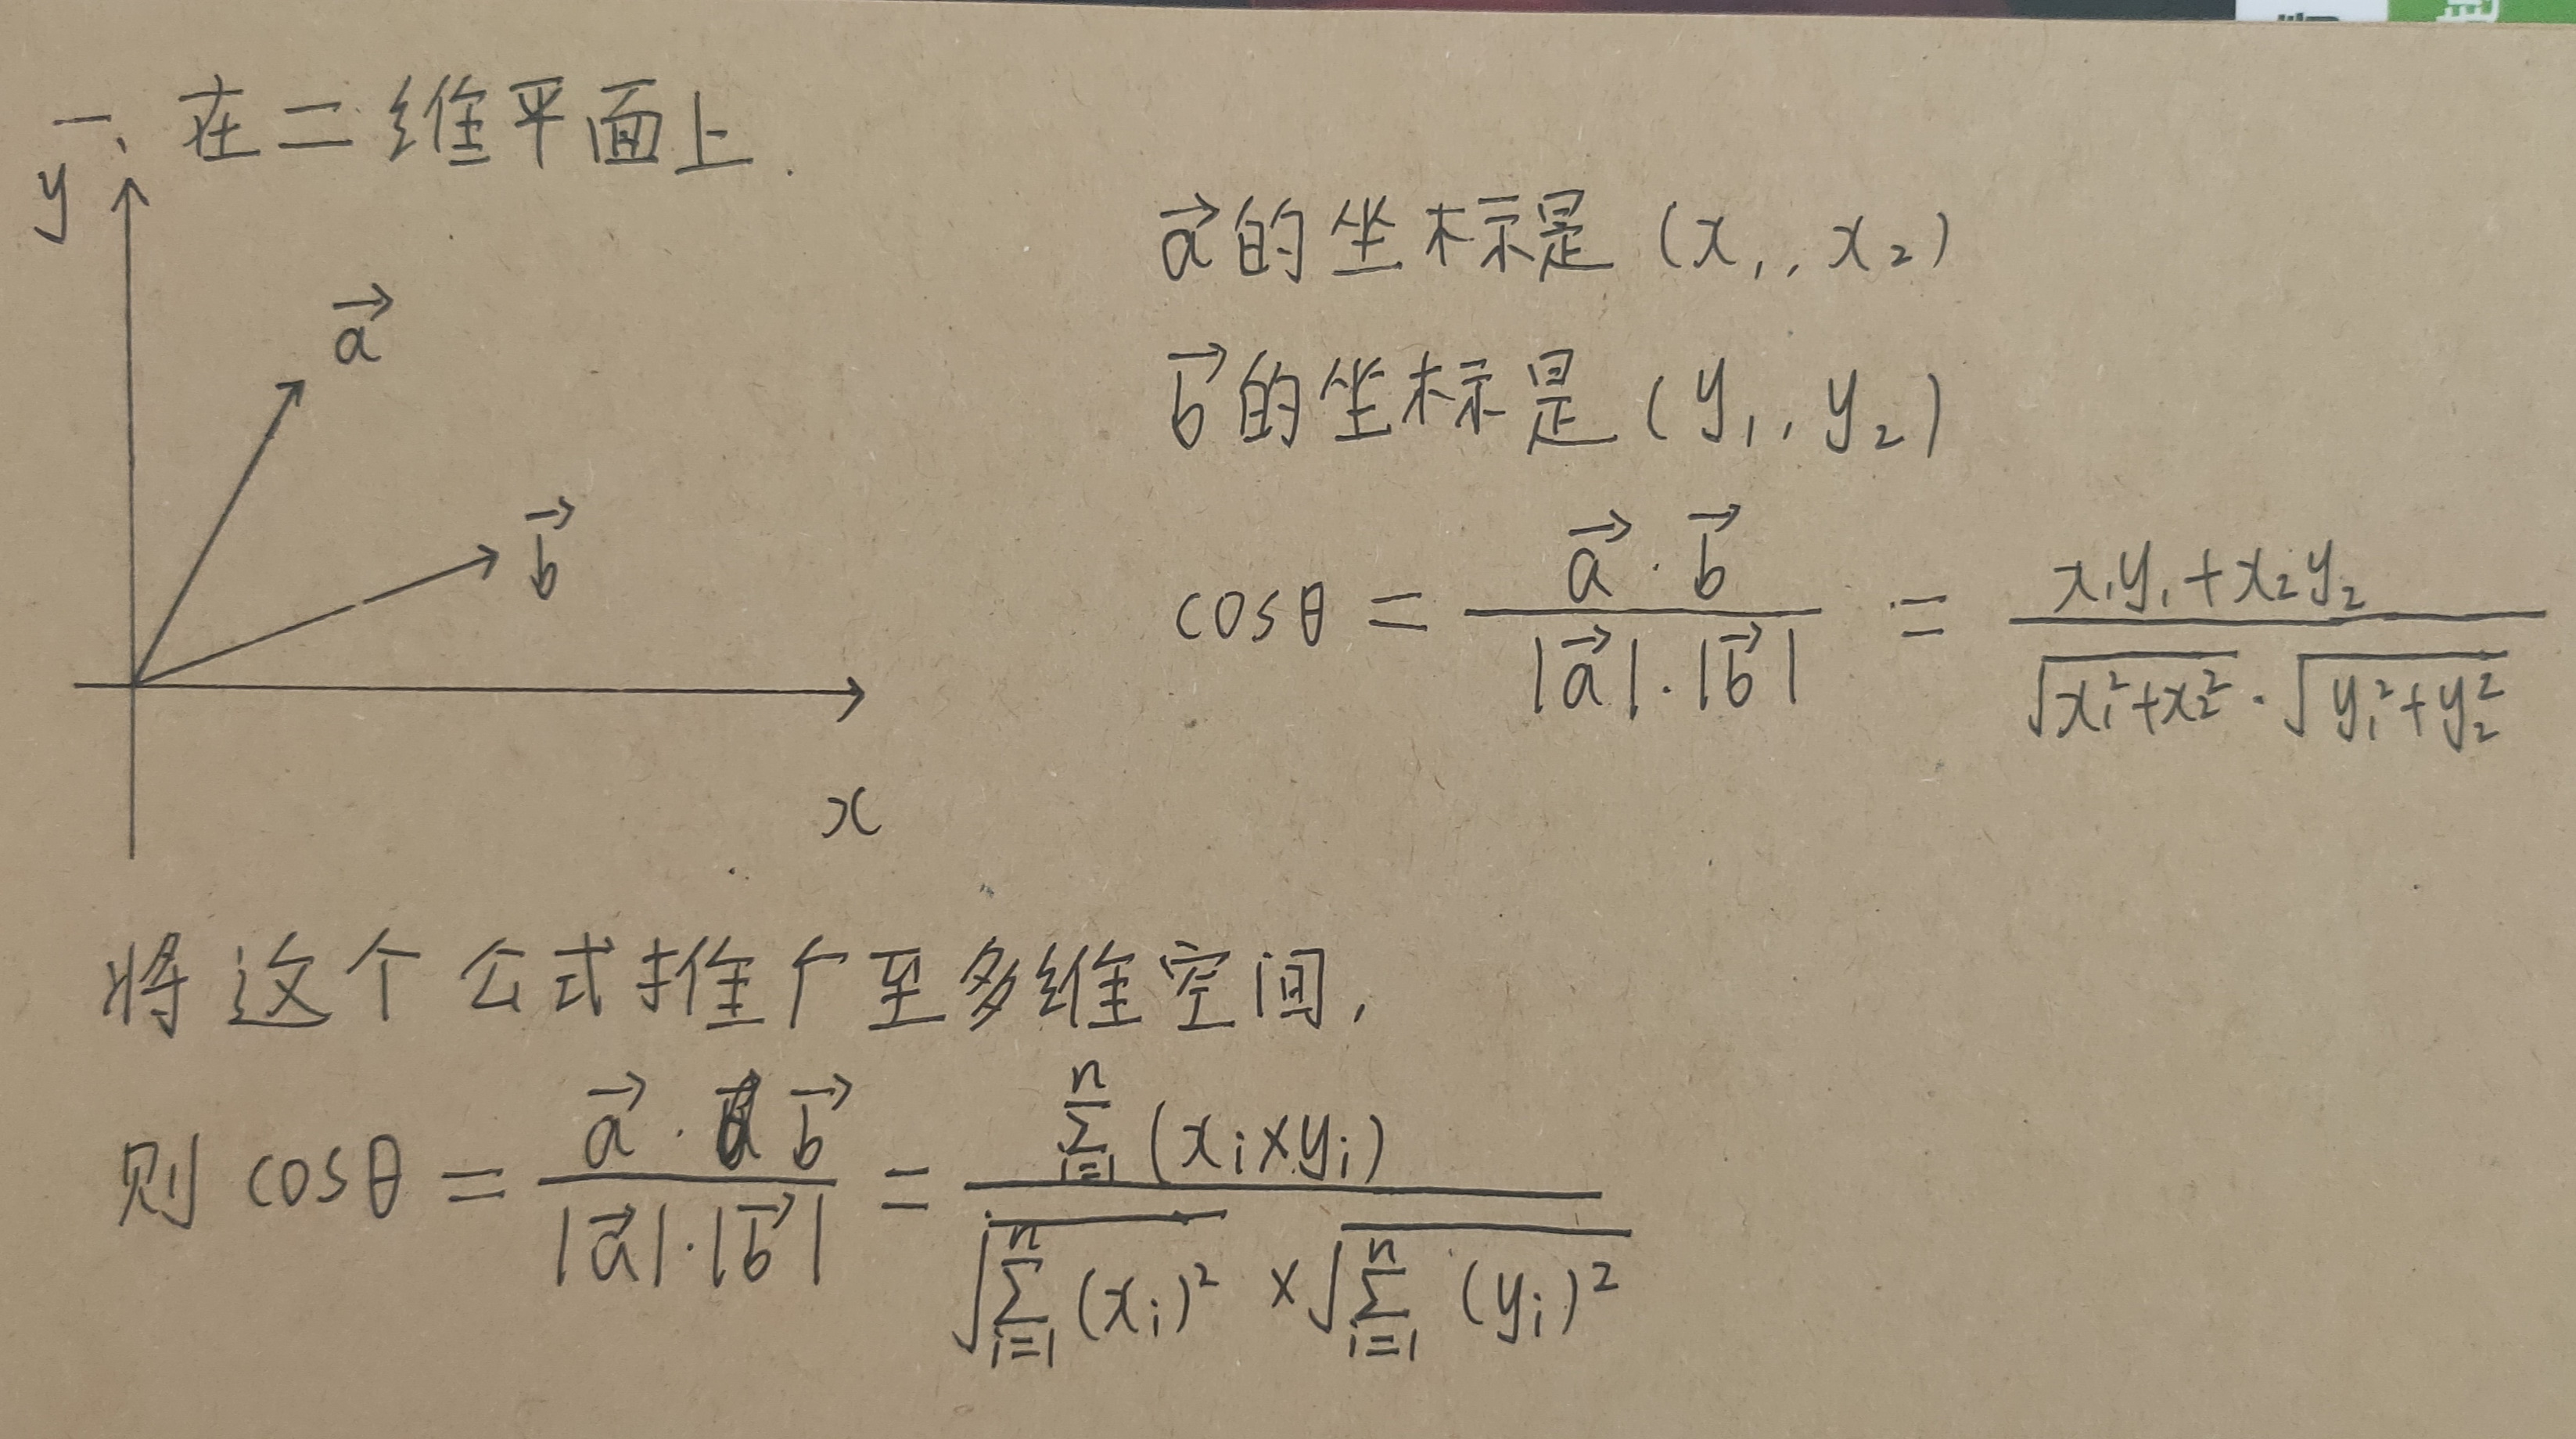 一、在二维平面上.
y
a⃗
b⃗
x
a⃗的坐标是(x₁,x₂)
b⃗的坐标是(y₁,y₂)
cosθ = (a⃗·b⃗)/(|a⃗|·|b⃗|) = (x₁y₁+x₂y₂)/(√(x₁²+x₂²)·√(y₁²+y₂²))
将这个公式推广至多维空间,
则 cosθ = (a⃗·b⃗)/(|a⃗|·|b⃗|) = (∑ⁿᵢ₌₁(xᵢ×yᵢ))/(√(∑ⁿᵢ₌₁(xᵢ)²)×√(∑ⁿᵢ₌₁(yᵢ)²))